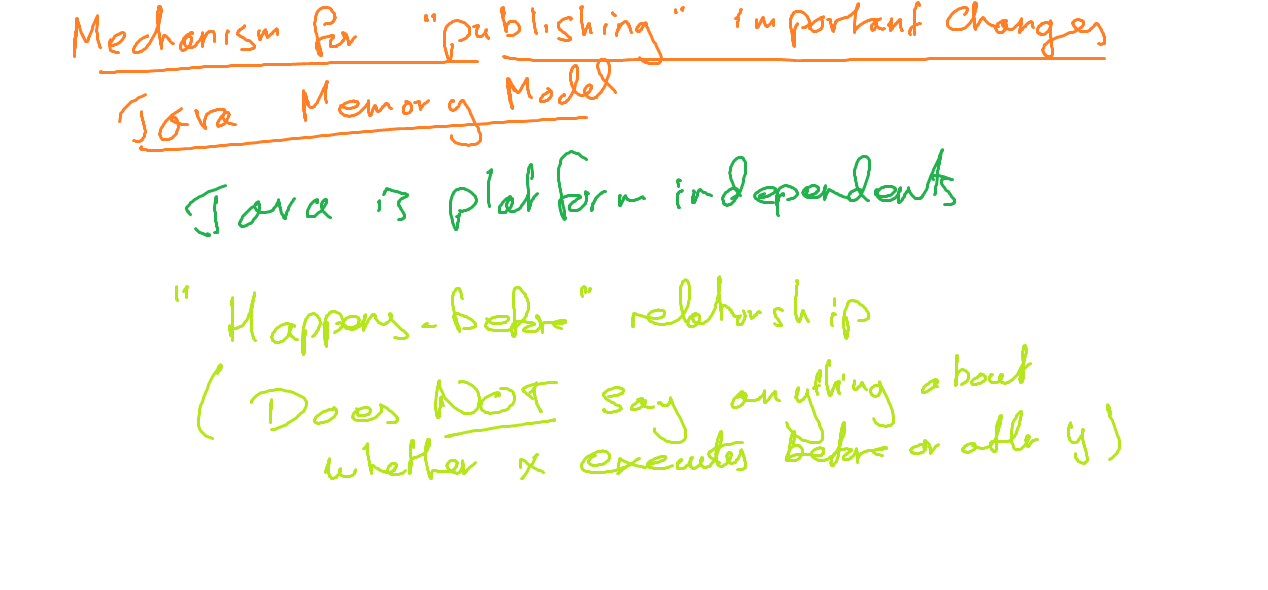 Mechanism for "publishing" important changes
Java Memory Model
Java is platform independents
"Happens-before" relationship
(Does NOT say anything about
whether x executes before or after y)